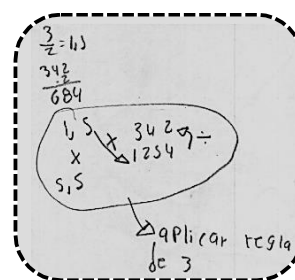 3/2 = 1,5
342
2
684
1,5 x 342 ÷
x 1254
5,5
aplicar regla
de 3